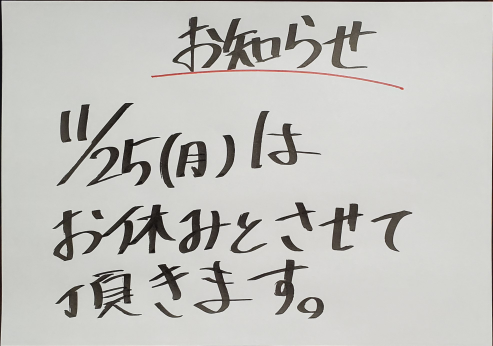 お知らせ
11/25(月)は
お休みとさせて
頂きます。